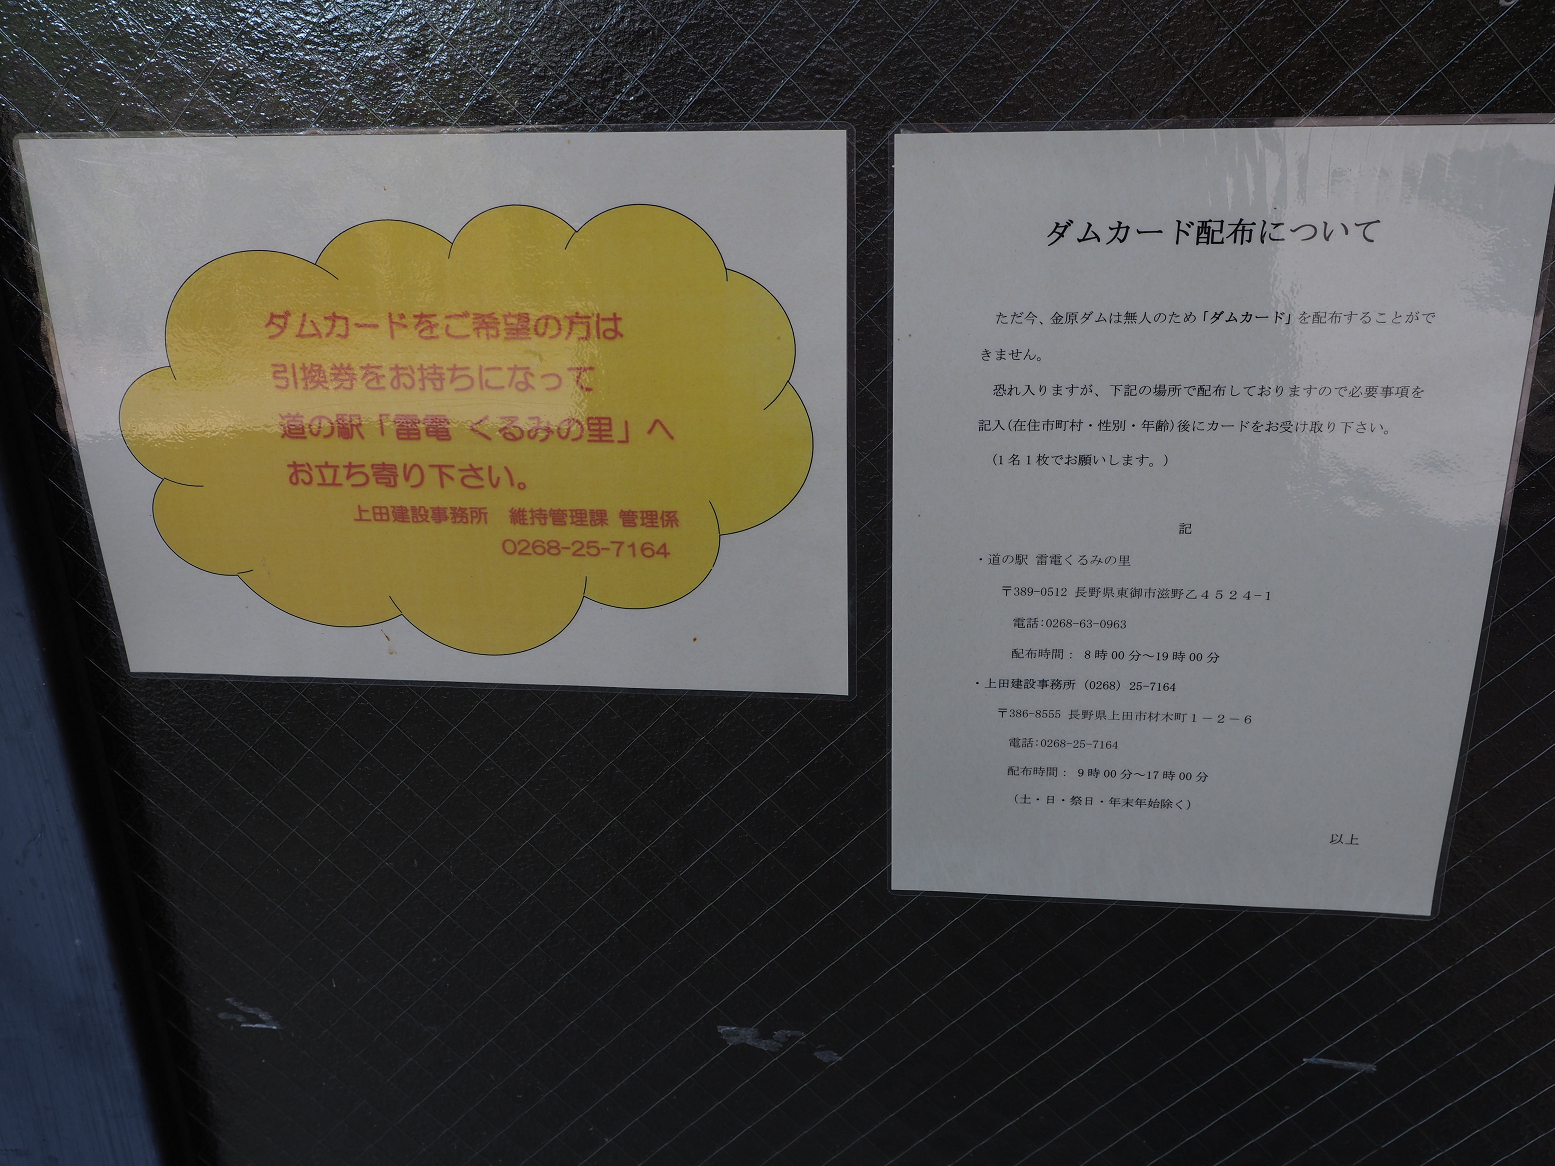 ダムカードをご希望の方は
引換券をお持ちになって
道の駅「雷電 くるみの里」へ
お立ち寄り下さい。
上田建設事務所　維持管理課 管理係
0268-25-7164
ダムカード配布について
ただ今、金原ダムは無人のため「ダムカード」を配布することがで
きません。
恐れ入りますが、下記の場所で配布しておりますので必要事項を
記入(在住市町村・性別・年齢)後にカードをお受け取り下さい。
(1名1枚でお願いします。)
記
・道の駅 雷電くるみの里
〒389-0512 長野県東御市滋野乙４５２４−１
電話:0268-63-0963
配布時間： 8時00分～19時00分
・上田建設事務所（0268）25-7164
〒386-8555 長野県上田市材木町１－２－６
電話:0268-25-7164
配布時間： 9時00分～17時00分
（土・日・祭日・年末年始除く）
以上